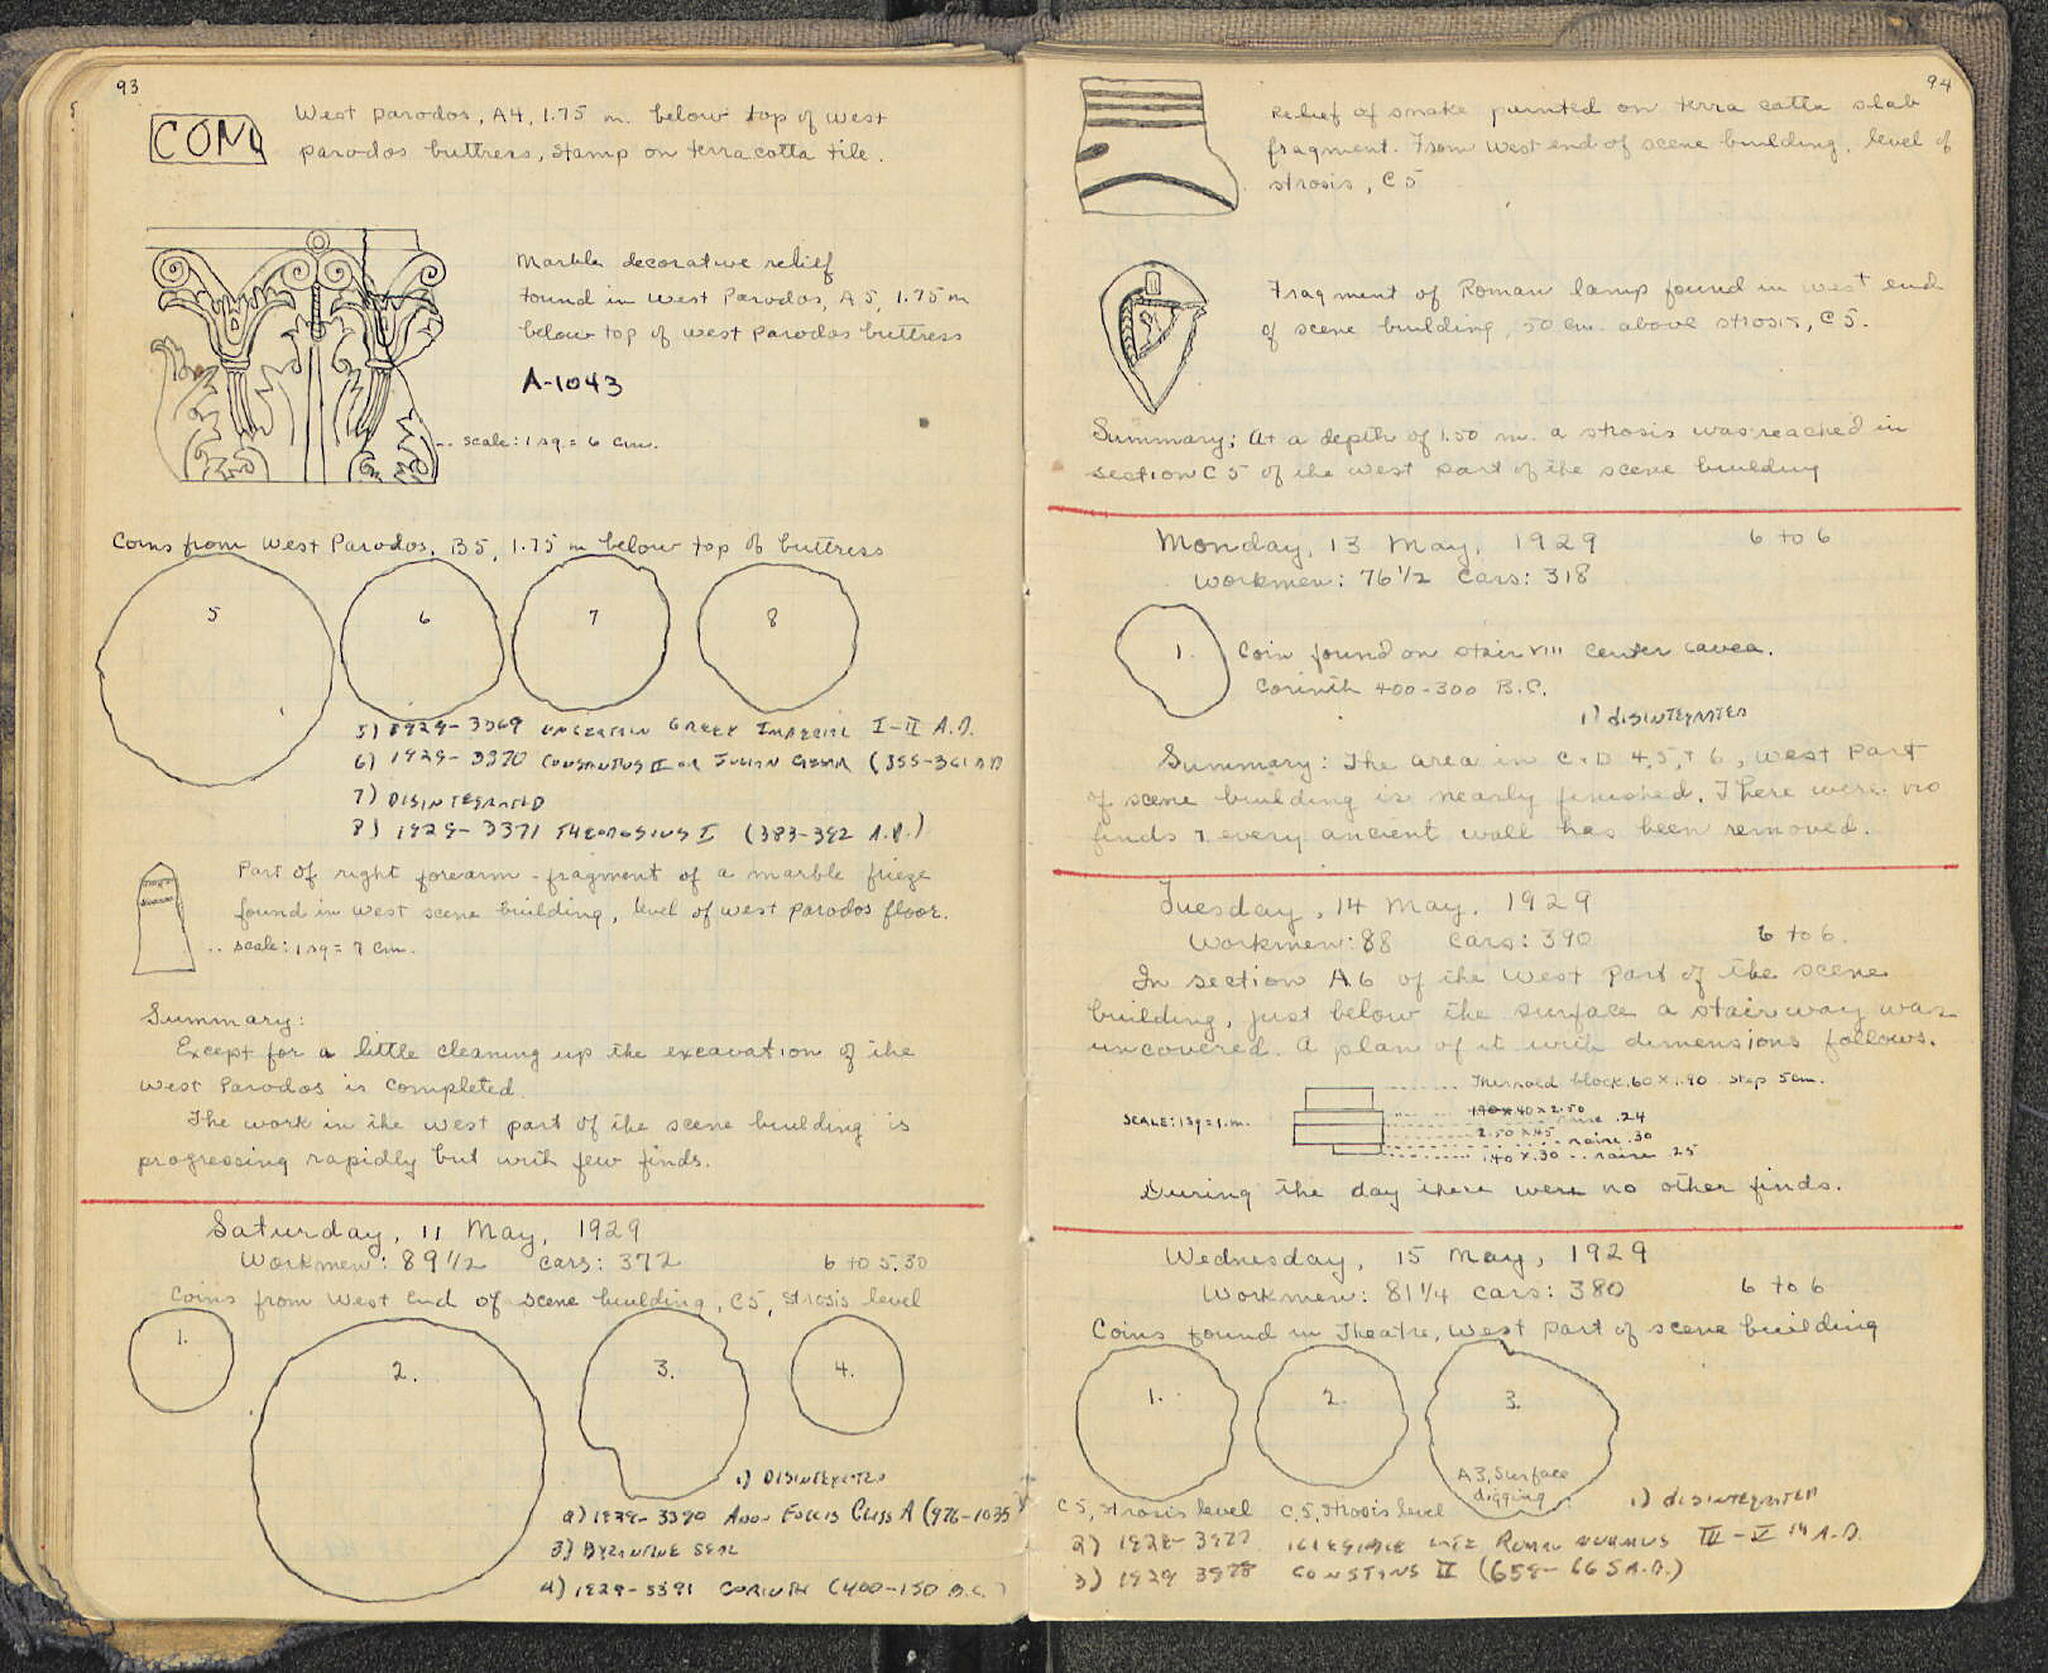 93
CON
West Parodos, A4, 1.75 m. below top of west
parodos buttress, stamp on terracotta tile.
Marble decorative relief
found in West Parodos, A5, 1.75 m
below top of west parodos buttress
A-1043
scale: 1 sq = 6 cm.
Coins from West Parodos, B5, 1.75 m below top of buttress
5
6
7
8
5) 1929-3369 uncertain Greek Imperial I-II A.D.
6) 1929-3370 Constantius II or Julian Caesar (355-361 AD
7) Disintegrated
8) 1929-3371 Theodosius I (383-392 A.D.)
Part of right forearm - fragment of a marble frieze
found in west scene building, level of west parodos floor.
.. scale: 1 sq = 7 cm.
Summary:
Except for a little cleaning up the excavation of the
West Parodos is completed.
The work in the west part of the scene building is
progressing rapidly but with few finds.
Saturday, 11 May, 1929
Workmen: 89 1/2 Cars: 372 6 to 5.30
Coins from West End of scene building, C5, strosis level
1.
2.
3.
4.
1) Disintegrated
2) 1929-3390 Anon Follis Class A (976-1035
3) Byzantine seal
4) 1929-3391 Corinth (400-150 B.C.)
94
Relief of snake painted on terra cotta slab
fragment. From West end of scene building, level of
strosis, C5
Fragment of Roman lamp found in west end
of scene building, 50 cm. above strosis, C5.
Summary: At a depth of 1.50 m. a strosis was reached in
section C5 of the west part of the scene building
Monday, 13 May, 1929 6 to 6
Workmen: 76 1/2 Cars: 318
1. Coin found on stair VIII center cavea.
Corinth 400-300 B.C.
1) disintegrated
Summary: The area in C+D 4,5,+6, west part
of scene building is nearly finished. There were no
finds & every ancient wall has been removed.
Tuesday, 14 May, 1929
Workmen: 88 Cars: 390 6 to 6.
In section A6 of the West part of the scene
building, just below the surface a stairway was
uncovered. A plan of it with dimensions follows.
block .60 x 1.90 step 5cm.
SCALE: 1 sq = 1.m.
1.90 x .40 x 2.50
raise .24
2.50 x .45
raise .30
1.40 x .30 .. raise .25
During the day there were no other finds.
Wednesday, 15 May, 1929
Workmen: 81 1/4 Cars: 380 6 to 6
Coins found in Theatre, West part of scene building
1.
2.
3.
A3, Surface
digging
C5, strosis level C5, strosis level 1) disintegrated
2) illegible late Roman nummus V th A.D.
3) 1929 3978 Constans II (659-665 A.D.)